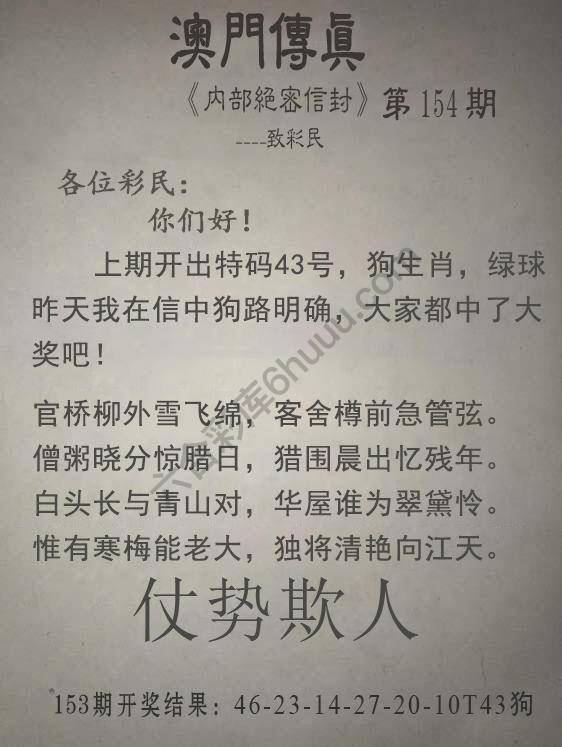 澳門傳真
《内部絕密信封》第154期
----致彩民
各位彩民：
你们好！
上期开出特码43号，狗生肖，绿球
昨天我在信中狗路明确，大家都中了大
奖吧！
官桥柳外雪飞绵，客舍樽前急管弦。
僧粥晓分惊腊日，猎围晨出忆残年。
白头长与青山对，华屋谁为翠黛怜。
惟有寒梅能老大，独将清艳向江天。
仗势欺人
153期开奖结果：46-23-14-27-20-10T43狗
六合彩库6huuu.com